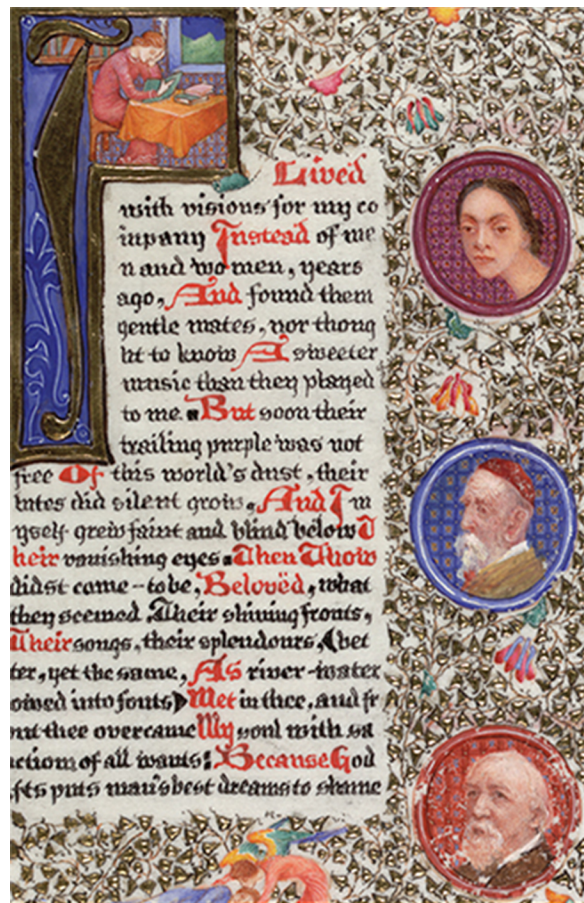 I Lived
with visions for my co
mpany Instead of me
n and wo men, years
ago, And found them
gentle mates, nor thoug
ht to know A sweeter
music than they played
to me. But soon their
trailing purple was not
free Of this world's dust, their
lutes did silent grow, And I m
yself grew faint and blind below T
heir vanishing eyes. Then Thow
didst come-to be, Belovëd, what
they seemed. Their shining fronts,
Their songs, their splendours, (bet
ter, yet the same, As river-water
owed into fonts) Met in thee, and fr
om thee overcame My soul with sa
ction of all wants: Because God
fts puts man's best dreams to shame